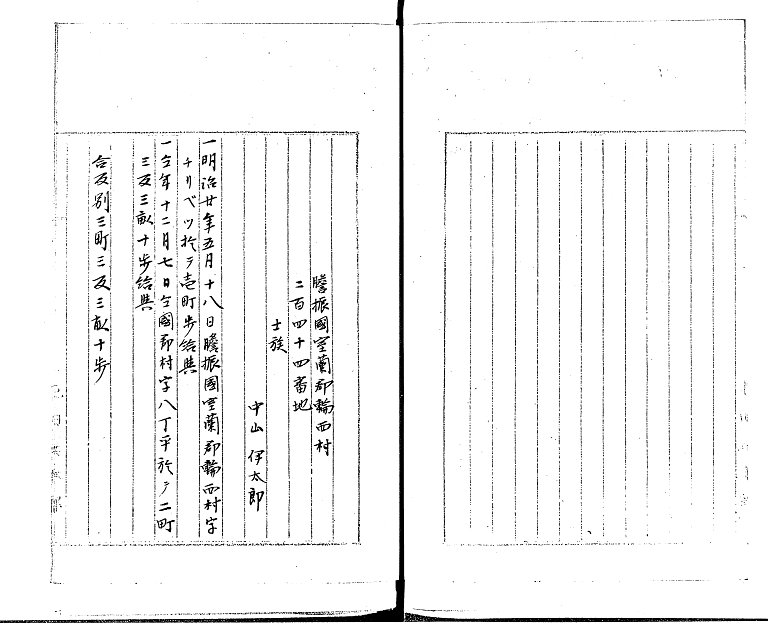 膽振國室蘭郡輪西村
二百四十四番地
士族
中山伊太郎
一明治廿年五月十八日膽振國室蘭郡輪西村字
チリベツ於テ壱町歩給與
一仝年十二月七日仝國郡村字八丁平於テ二町
三反三畝十歩給與
合反別三町三反三畝十歩